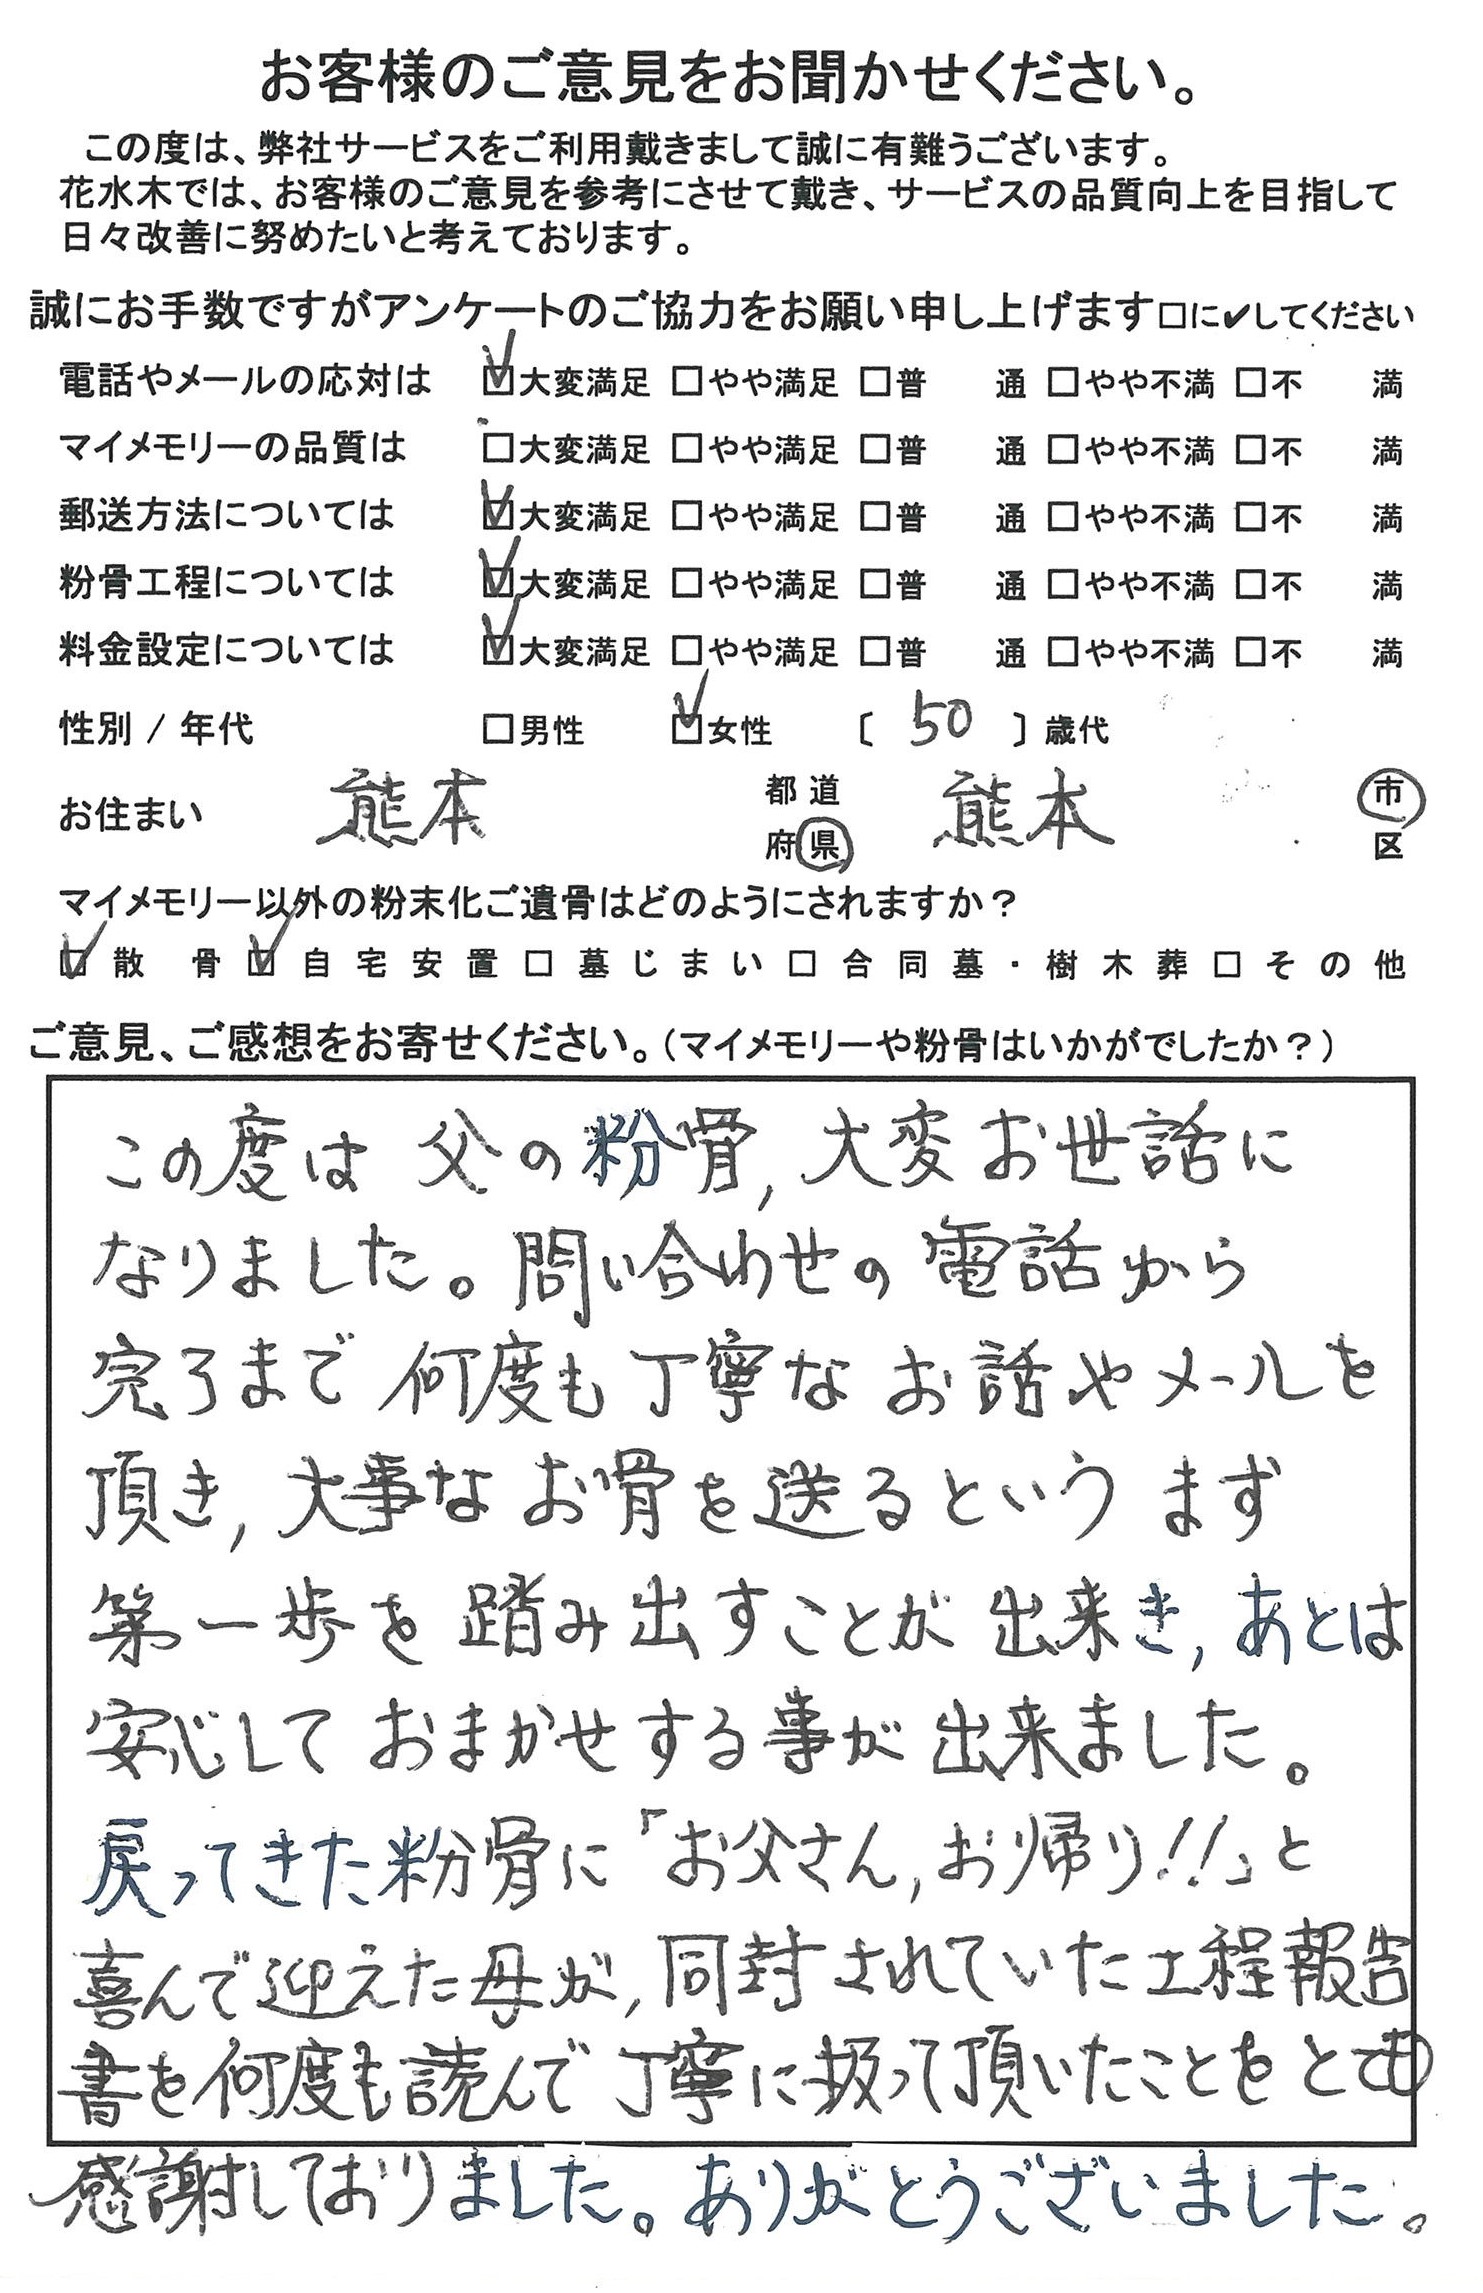 お客様のご意見をお聞かせください。
この度は、弊社サービスをご利用戴きまして誠に有難うございます。
花水木では、お客様のご意見を参考にさせて戴き、サービスの品質向上を目指して
日々改善に努めたいと考えております。
誠にお手数ですがアンケートのご協力をお願い申し上げます□に✔してください
電話やメールの応対は ☑大変満足 □やや満足 □普 通 □やや不満 □不 満
マイメモリーの品質は □大変満足 □やや満足 □普 通 □やや不満 □不 満
郵送方法については ☑大変満足 □やや満足 □普 通 □やや不満 □不 満
粉骨工程については ☑大変満足 □やや満足 □普 通 □やや不満 □不 満
料金設定については ☑大変満足 □やや満足 □普 通 □やや不満 □不 満
性別 / 年代 □男性 ☑女性 〔 50 〕歳代
お住まい 熊本 都道府県 熊本 市区
マイメモリー以外の粉末化ご遺骨はどのようにされますか？
☑散 骨 ☑自宅安置 □墓じまい □合同墓・樹木葬 □その他
ご意見、ご感想をお寄せください。（マイメモリーや粉骨はいかがでしたか？）
この度は 父の粉骨, 大変お世話に
なりました。問い合わせの電話から
完了まで何度も丁寧なお話やメールを
頂き, 大事なお骨を送るという まず
第一歩を踏み出すことが出来き, あとは
安心しておまかせする事が出来ました。
戻ってきた粉骨に「お父さん, お帰り!!」と
喜んで迎えた母が, 同封されていた工程報告
書を何度も読んで丁寧に扱って頂いたことをとても
感謝しておりました。ありがとうございました。